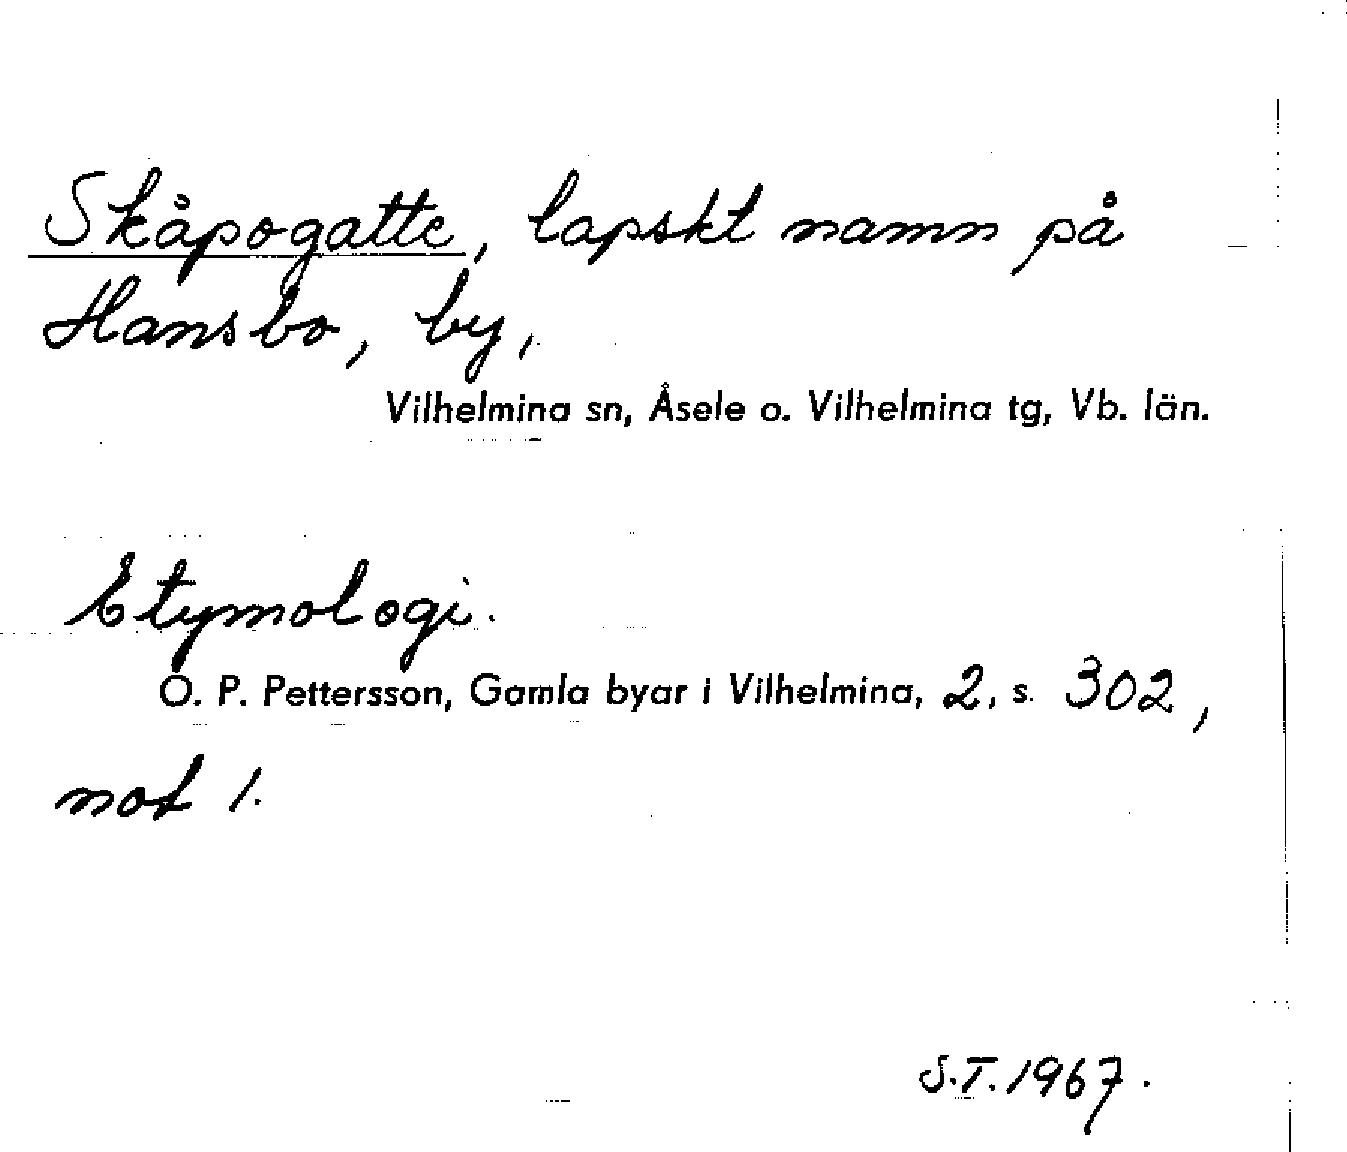 Skåpogatte, lapskt namn på
Hansbo, by,
Vilhelmina sn, Åsele o. Vilhelmina tg, Vb. län.
Etymologi.
O. P. Pettersson, Gamla byar i Vilhelmina, 2, s. 302,
not 1.
S.T. 1967.